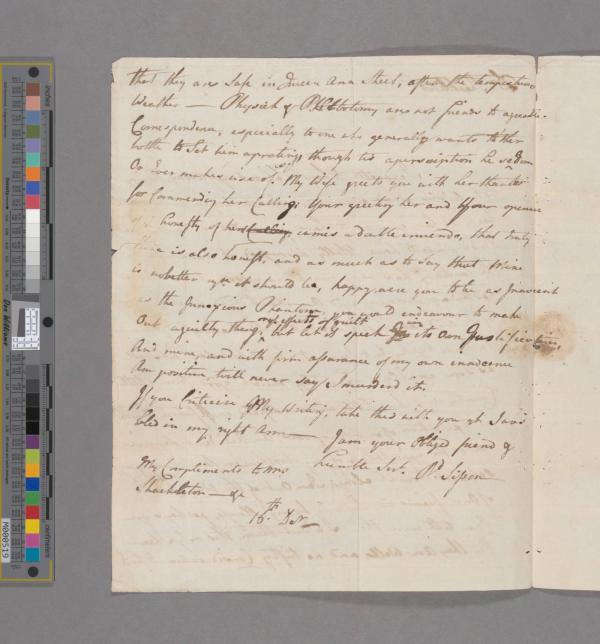 that they are Safe in Queen Ann Street, after the tempestuous
Weather — Physick & Phlebotomy are not friends to agreeable
Correspondence, especially to one who generally wants tother
bottle to Set him aprating, though tis a perossition he seldom
Or Ever makes use of. My Wife greets you with her thanks
for Commending her Calling; Your greeting her and your opinion
honesty of her Calling carries a double inuendo, that truly
is also honest, and as much as to Say that Wine
is no better yn it should be, happy were you to be as Innocent
as the Innoxious Phantom, you would endeavour to make
Out aguilty thing, respects of guilt but let it speak in its own Justification,
And mine, and with firm assurance of my own innocence
Am positive, will never Say I murderd it.
If you Criticise My Writing, take this with you yt I was
bled in my right Arm — I am your Obliged friend &
humble Servt. Rd. Sisson
My Compliments to Mrs
Shackleton — &c
16th. Dr
inches
centimetres
Don Williams
M000519